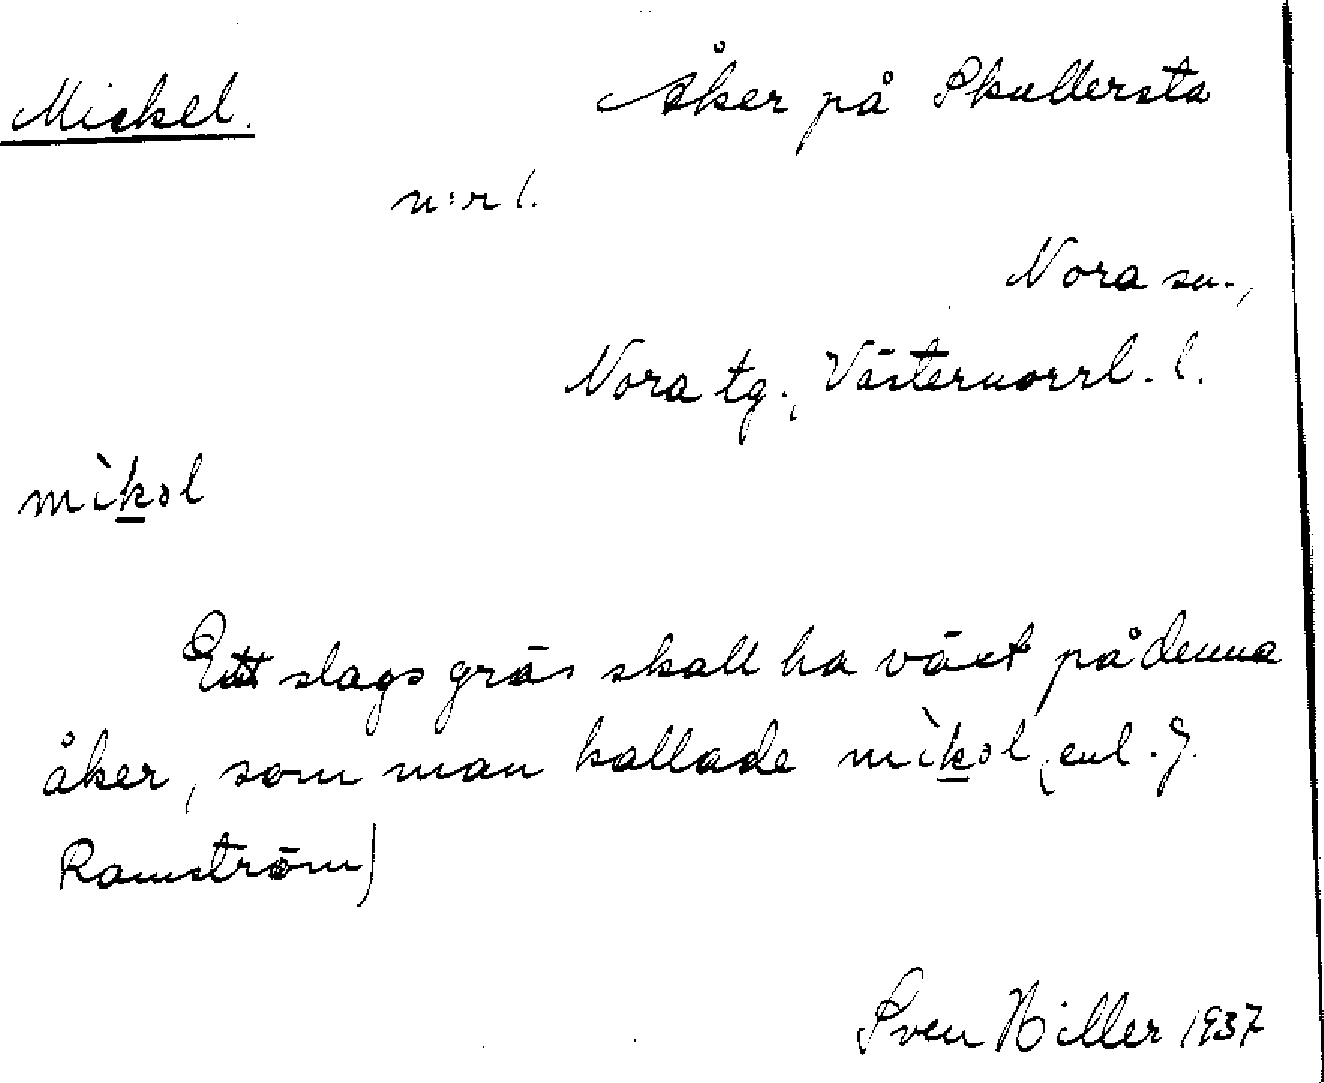 Mickel. Åker på Skullersta
n:r 1.
Nora sn.,
Nora tg., Västernorrl. l.
mìkəl
Ett slags gräs skall ha växt på denna
åker, som man kallade mìkəl (enl. J.
Ramström)
Sven Hiller 1937